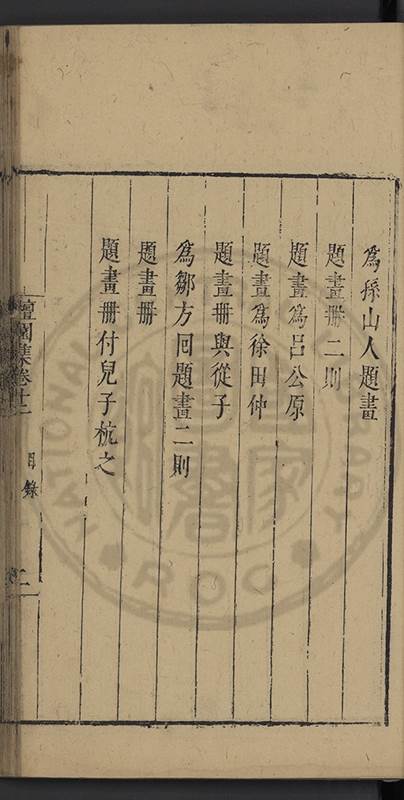 爲孫山人題畫
題畫冊二則
題畫爲呂公原
題畫爲徐田仲
題畫冊與從子
爲鄒方回題畫二則
題畫冊
題畫冊付兒子杭之
檀園集卷十二 目錄 二